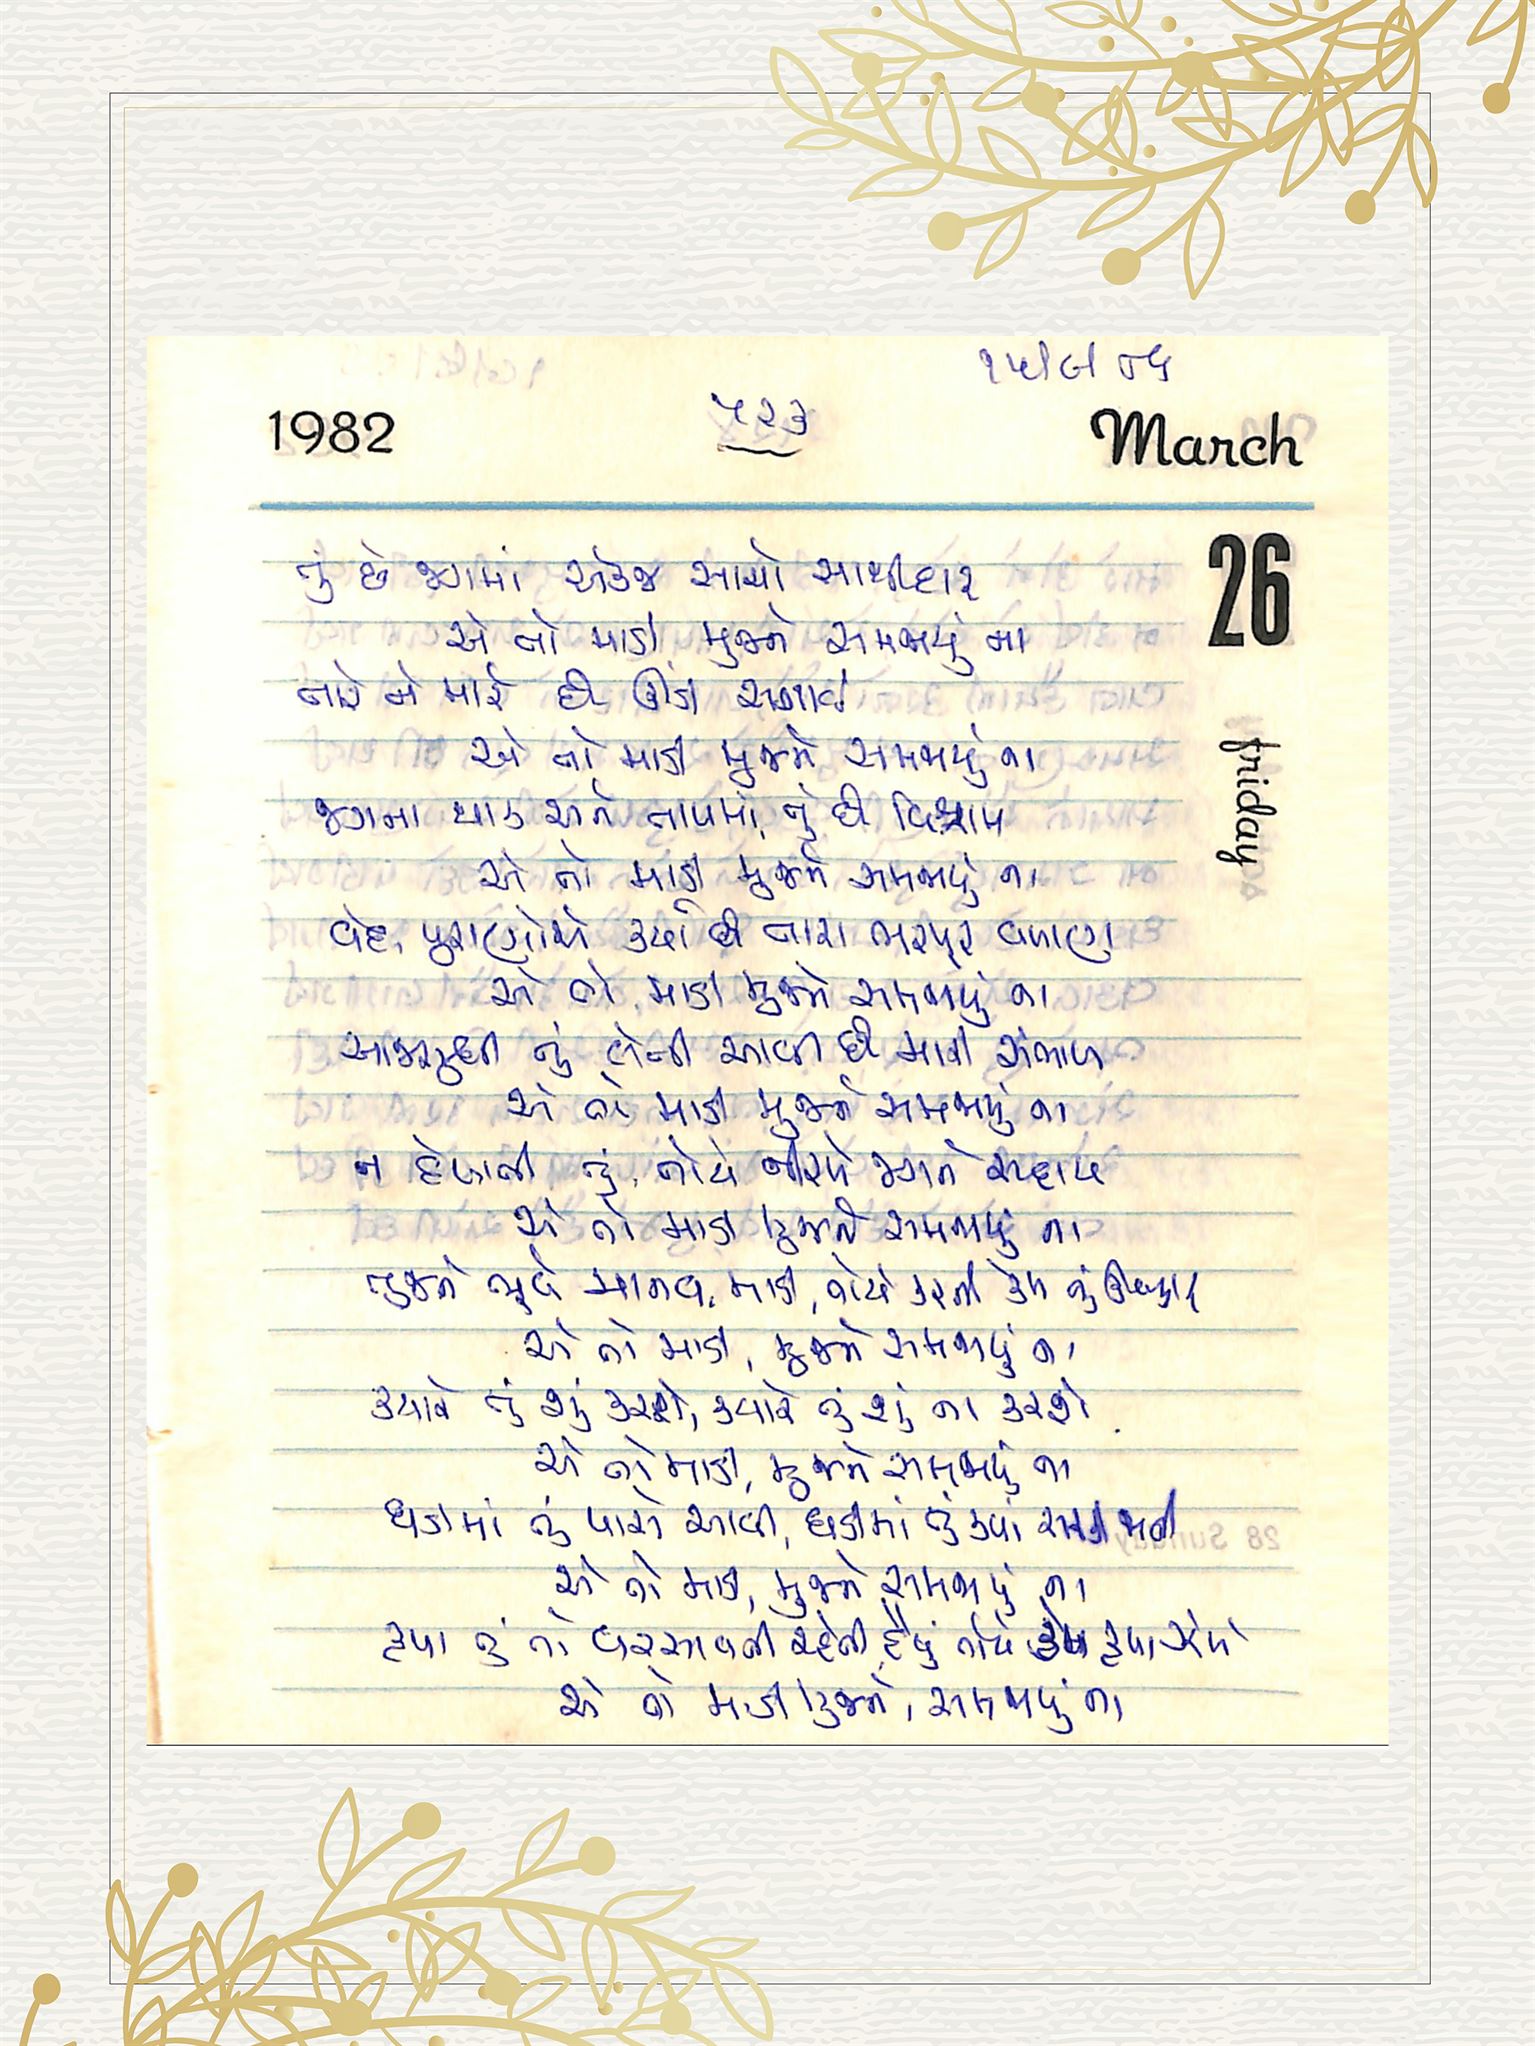 1982
૫૨૩
March
26
friday
તું છે જગમાં એકજ સાચો સાથીદાર
એ તો માડી મુજને સમજાયું ના
તારે ને મારે છે ઊંડી સગાઈ
એ તો માડી મુજને સમજાયું ના
જગના થાક અને તાપમાં, તું છે વિશ્રામ
એ તો માડી મુજને સમજાયું ના
વેદ, પુરાણોએ કર્યા છે તારા ભરપૂર વખાણ
એ તો, માડી મુજને સમજાયું ના
આજસુધી તું લેતી આવી છે મારી સંભાળ
એ તો માડી મુજને સમજાયું ના
ન દેખાતી તું, તોયે તીરથે જગને સદાય
એ તો માડી મુજને સમજાયું ના
તુજને ભૂલે માનવ, માડી, તોયે કરતી કેમ તું ઊપકાર
એ તો માડી, મુજને સમજાયું ના
ક્યારે તું શું કરશે, ક્યારે તું શું ના કરશે
એ તો માડી, મુજને સમજાયું ના
ઘડીમાં તું પાસે આવી, ઘડીમાં તું ક્યાં સરકી જાતી
એ તો માડી, મુજને સમજાયું ના
કૃપા તું તો વરસાવતી રહેતી, હૈયું તોયે કેમ કૃપા ઝંખે
એ તો માડી મુજને, સમજાયું ના